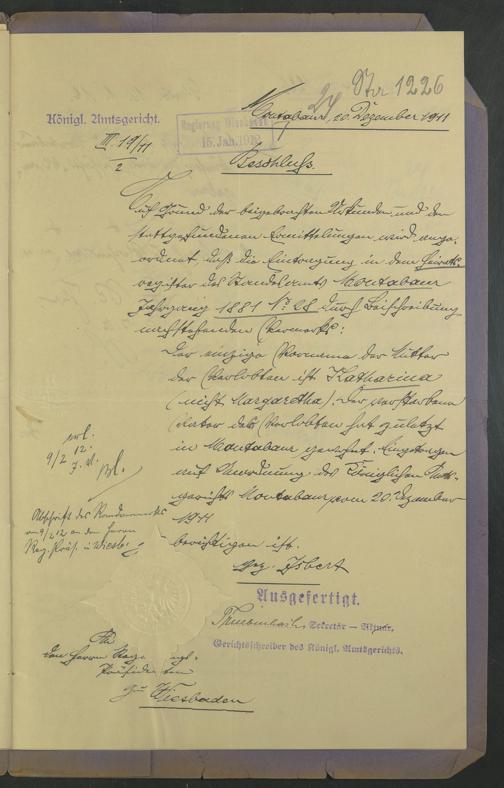 Str 1226
24
Montabaur, 20. Dezember 1911
Königl. Amtsgericht.
III 19/11
2
Regierung Wiesbaden
15. Jan. 1912
Beschluß.
Auf Grund der beigebrachten Urkunden und der
stattgefundenen Ermittelungen wird ange-
ordnet, daß die Eintragung in dem Heirats-
register des Standesamts Montabaur
Jahrgang 1881 No 28 durch Beischreibung
nachstehenden Vermerks:
Der einzige Vorname der Mutter
der Verlobten ist Katharina
(nicht Margaretha). Der verstorbene
Vater des Verlobten hat zuletzt
in Montabaur gewohnt. Eingetragen
auf Anordnung des Königlichen Amts-
gerichts Montabaur vom 20. Dezember
1911
berichtigen ist.
gez. Isbert
Ausgefertigt.
Sekretär — Aktuar,
Gerichtsschreiber des Königl. Amtsgerichts.
erl.
9/2 12.
Abschrift des Randvermerks
am 9/2 12 an den Herrn
Reg. Präs. in Wiesb.
An
den Herrn
Präsidenten
zu Wiesbaden